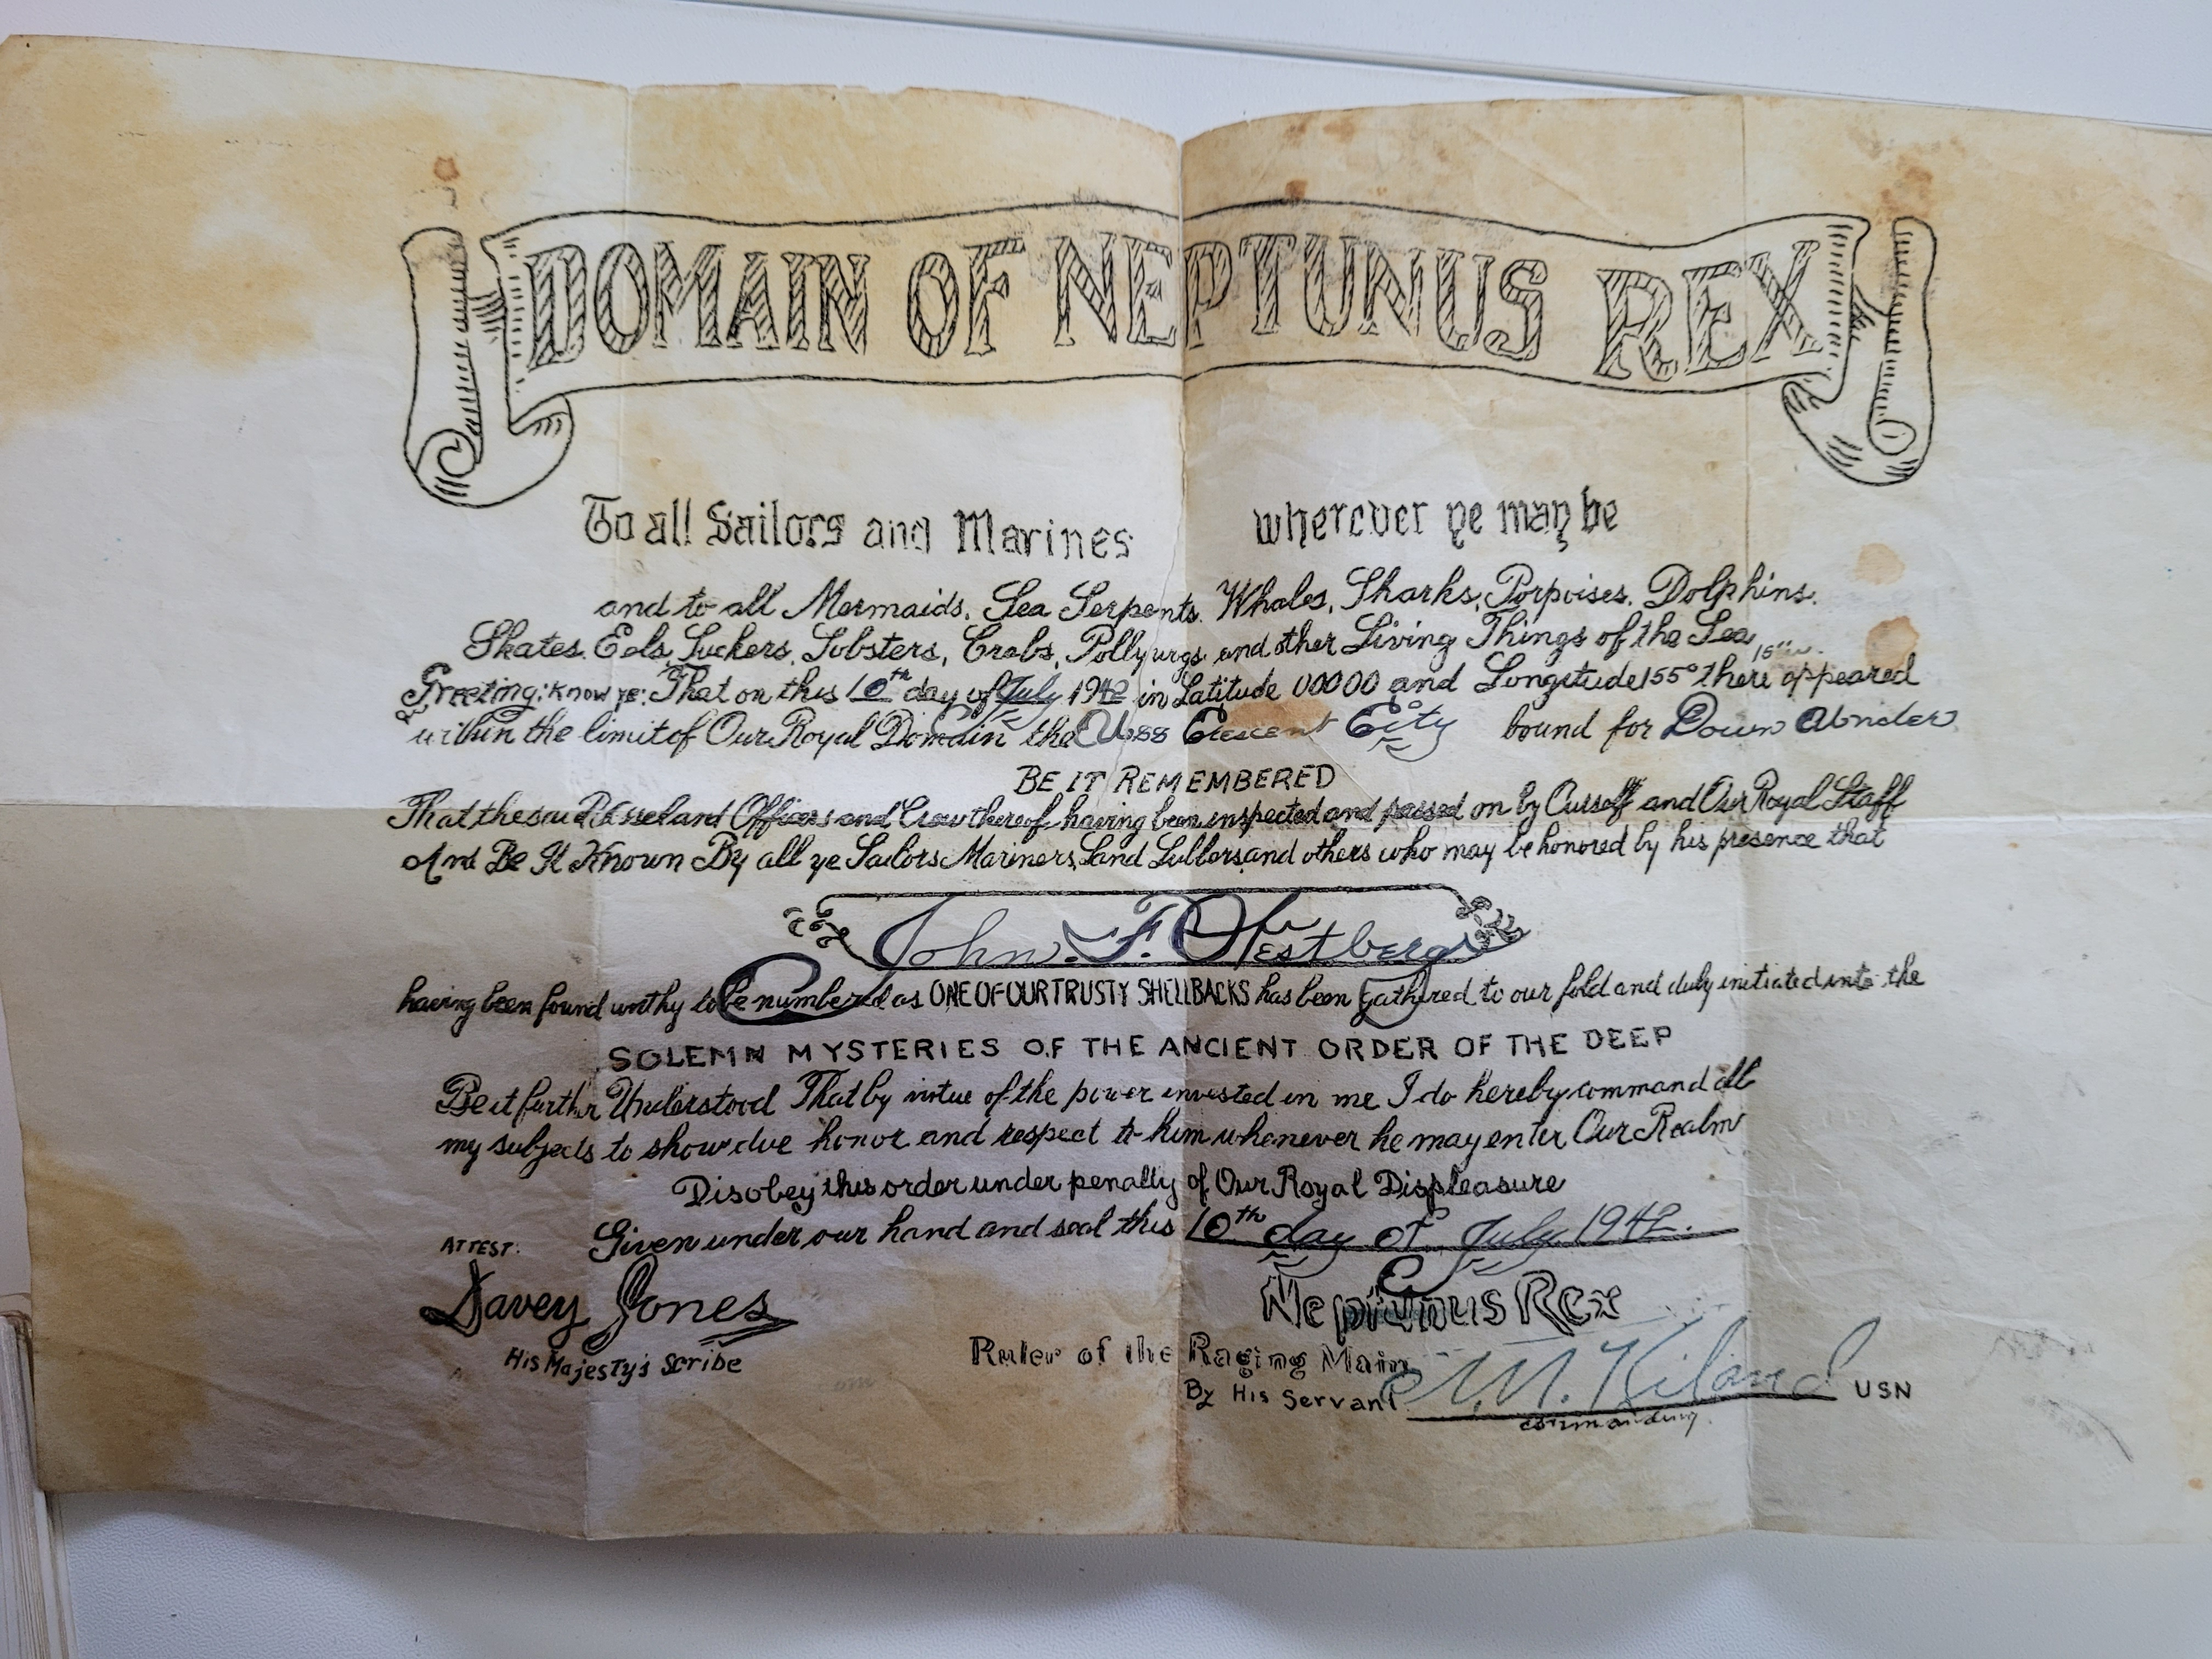 DOMAIN OF NEPTUNUS REX
To all Sailors and Marines wherever ye may be
and to all Mermaids, Sea Serpents, Whales, Sharks, Porpoises, Dolphins,
Skates, Eels, Suckers, Lobsters, Crabs, Pollywogs and other Living Things of the Sea
Greeting: Know ye: That on this 10th day of July 1942 in Latitude 00000 and Longitude 155° there appeared
within the limit of Our Royal Domain the Uss Crescent City bound for Down Under
BE IT REMEMBERED
That the said Vessel and Officers and Crew thereof, having been inspected and passed on by Ourself and Our Royal Staff
And Be It Known By all ye Sailors, Mariners, Land Lubbers, and others who may be honored by his presence that
John. F. Westberg
having been found worthy to be numbered as ONE OF OUR TRUSTY SHELLBACKS has been gathered to our fold and duly initiated into the
SOLEMN MYSTERIES OF THE ANCIENT ORDER OF THE DEEP
Be it further Understood That by virtue of the power invested in me I do hereby command all
my subjects to show due honor and respect to him whenever he may enter Our Realm
Disobey this order under penalty of Our Royal Displeasure
Given under our hand and seal this 10th day of July 1942.
ATTEST:
Davey Jones
His Majesty's Scribe
Neptunus Rex
Ruler of the Raging Main
By His Servant Kiland USN
commanding.